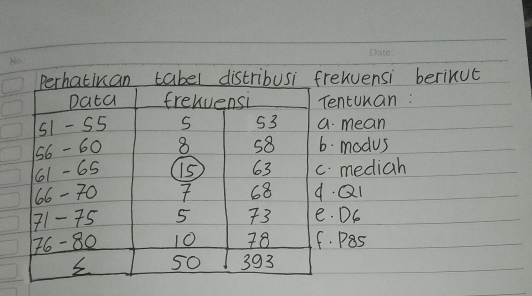 No:
Date:
Perhatikan tabel distribusi frekuensi berikut
Data frekuensi Tentukan :
51 - 55 5 53 a. mean
56 - 60 8 58 b. modus
61 - 65 15 63 c. mediah
66 - 70 7 68 d. Q1
71 - 75 5 73 e. D6
76 - 80 10 78 f. P85
Σ 50 393